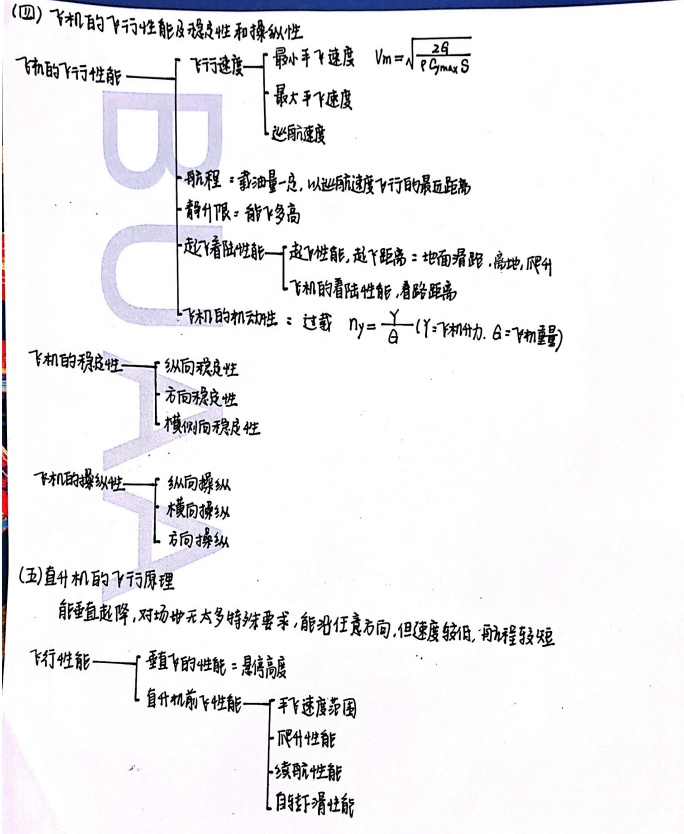 (四) 飞机的飞行性能及稳定性和操纵性
飞机的飞行性能 飞行速度 最小平飞速度 Vm=√(2G/ρCymaxS)
最大平飞速度
巡航速度
航程：载油量一定，以巡航速度飞行的最远距离
静升限：能飞多高
起飞着陆性能 起飞性能，起飞距离：地面滑跑、离地，爬升
飞机的着陆性能，着路距离
飞机的机动性：过载 ny=Y/G (Y=飞机升力. G=飞机重量)
飞机的稳定性 纵向稳定性
方向稳定性
横侧向稳定性
飞机的操纵性 纵向操纵
横向操纵
方向操纵
(五)直升机的飞行原理
能垂直起降，对场地无太多特殊要求，能沿任意方向，但速度较低，航程较短
飞行性能 垂直飞的性能：悬停高度
直升机前飞性能 平飞速度范围
爬升性能
续航性能
自转下滑性能
BUAA